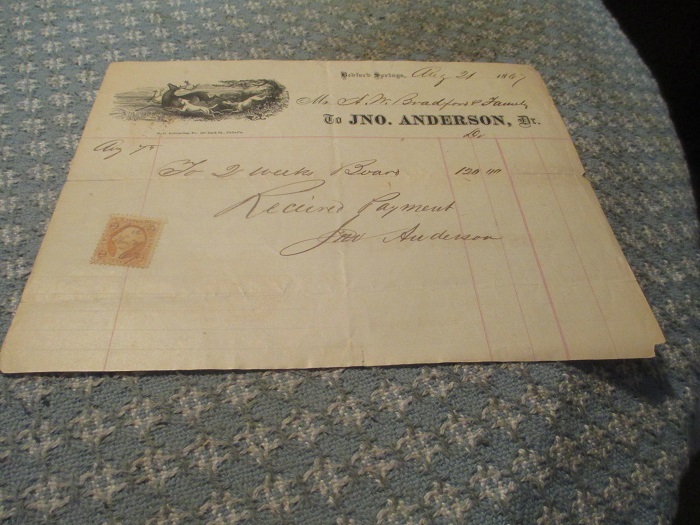 Bedford Springs, Aug 21 1867
Mr A. W. Bradford & Family
To JNO. ANDERSON, Dr.
Dr
Aug 7th
To 2 weeks Board 120.00
Recieved Payment
Jno Anderson